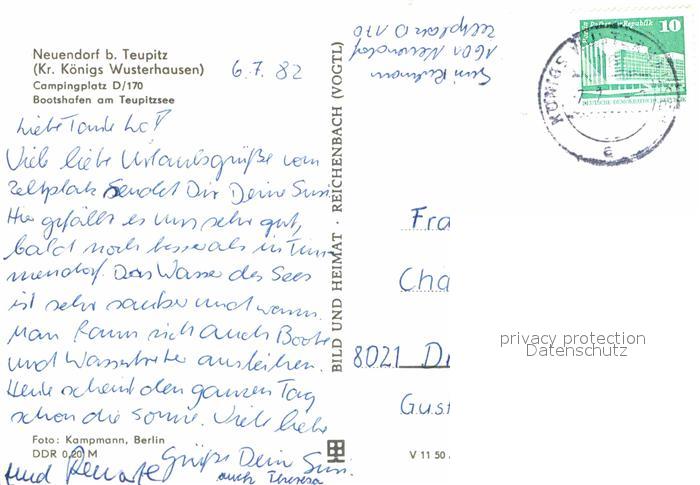 Neuendorf b. Teupitz
(Kr. Königs Wusterhausen)
Campingplatz D/170
Bootshafen am Teupitzsee
6.7.82
Liebe Tante Lo!
Viele liebe Urlaubsgrüße vom
Zeltplatz sendet Dir Deine Susi.
Hier gefällt es uns sehr gut,
bald noch besser als in Tim-
mendorf. Das Wasser des Sees
ist sehr sauber und warm.
Man kann sich auch Boote
und Wassertreter ausleihen.
Heute scheint den ganzen Tag
schon die Sonne. Viele liebe
Grüße Deine Susi.
und Renate
auch Theresa
Foto: Kampmann, Berlin
DDR 0,20 M
BILD UND HEIMAT · REICHENBACH (VOGTL)
V 11 50
1601 Neuendorf
Zeltplatz D 170
10
KÖNIGS WU
Fra
Cha
8021 Dr
Gust
privacy protection
Datenschutz